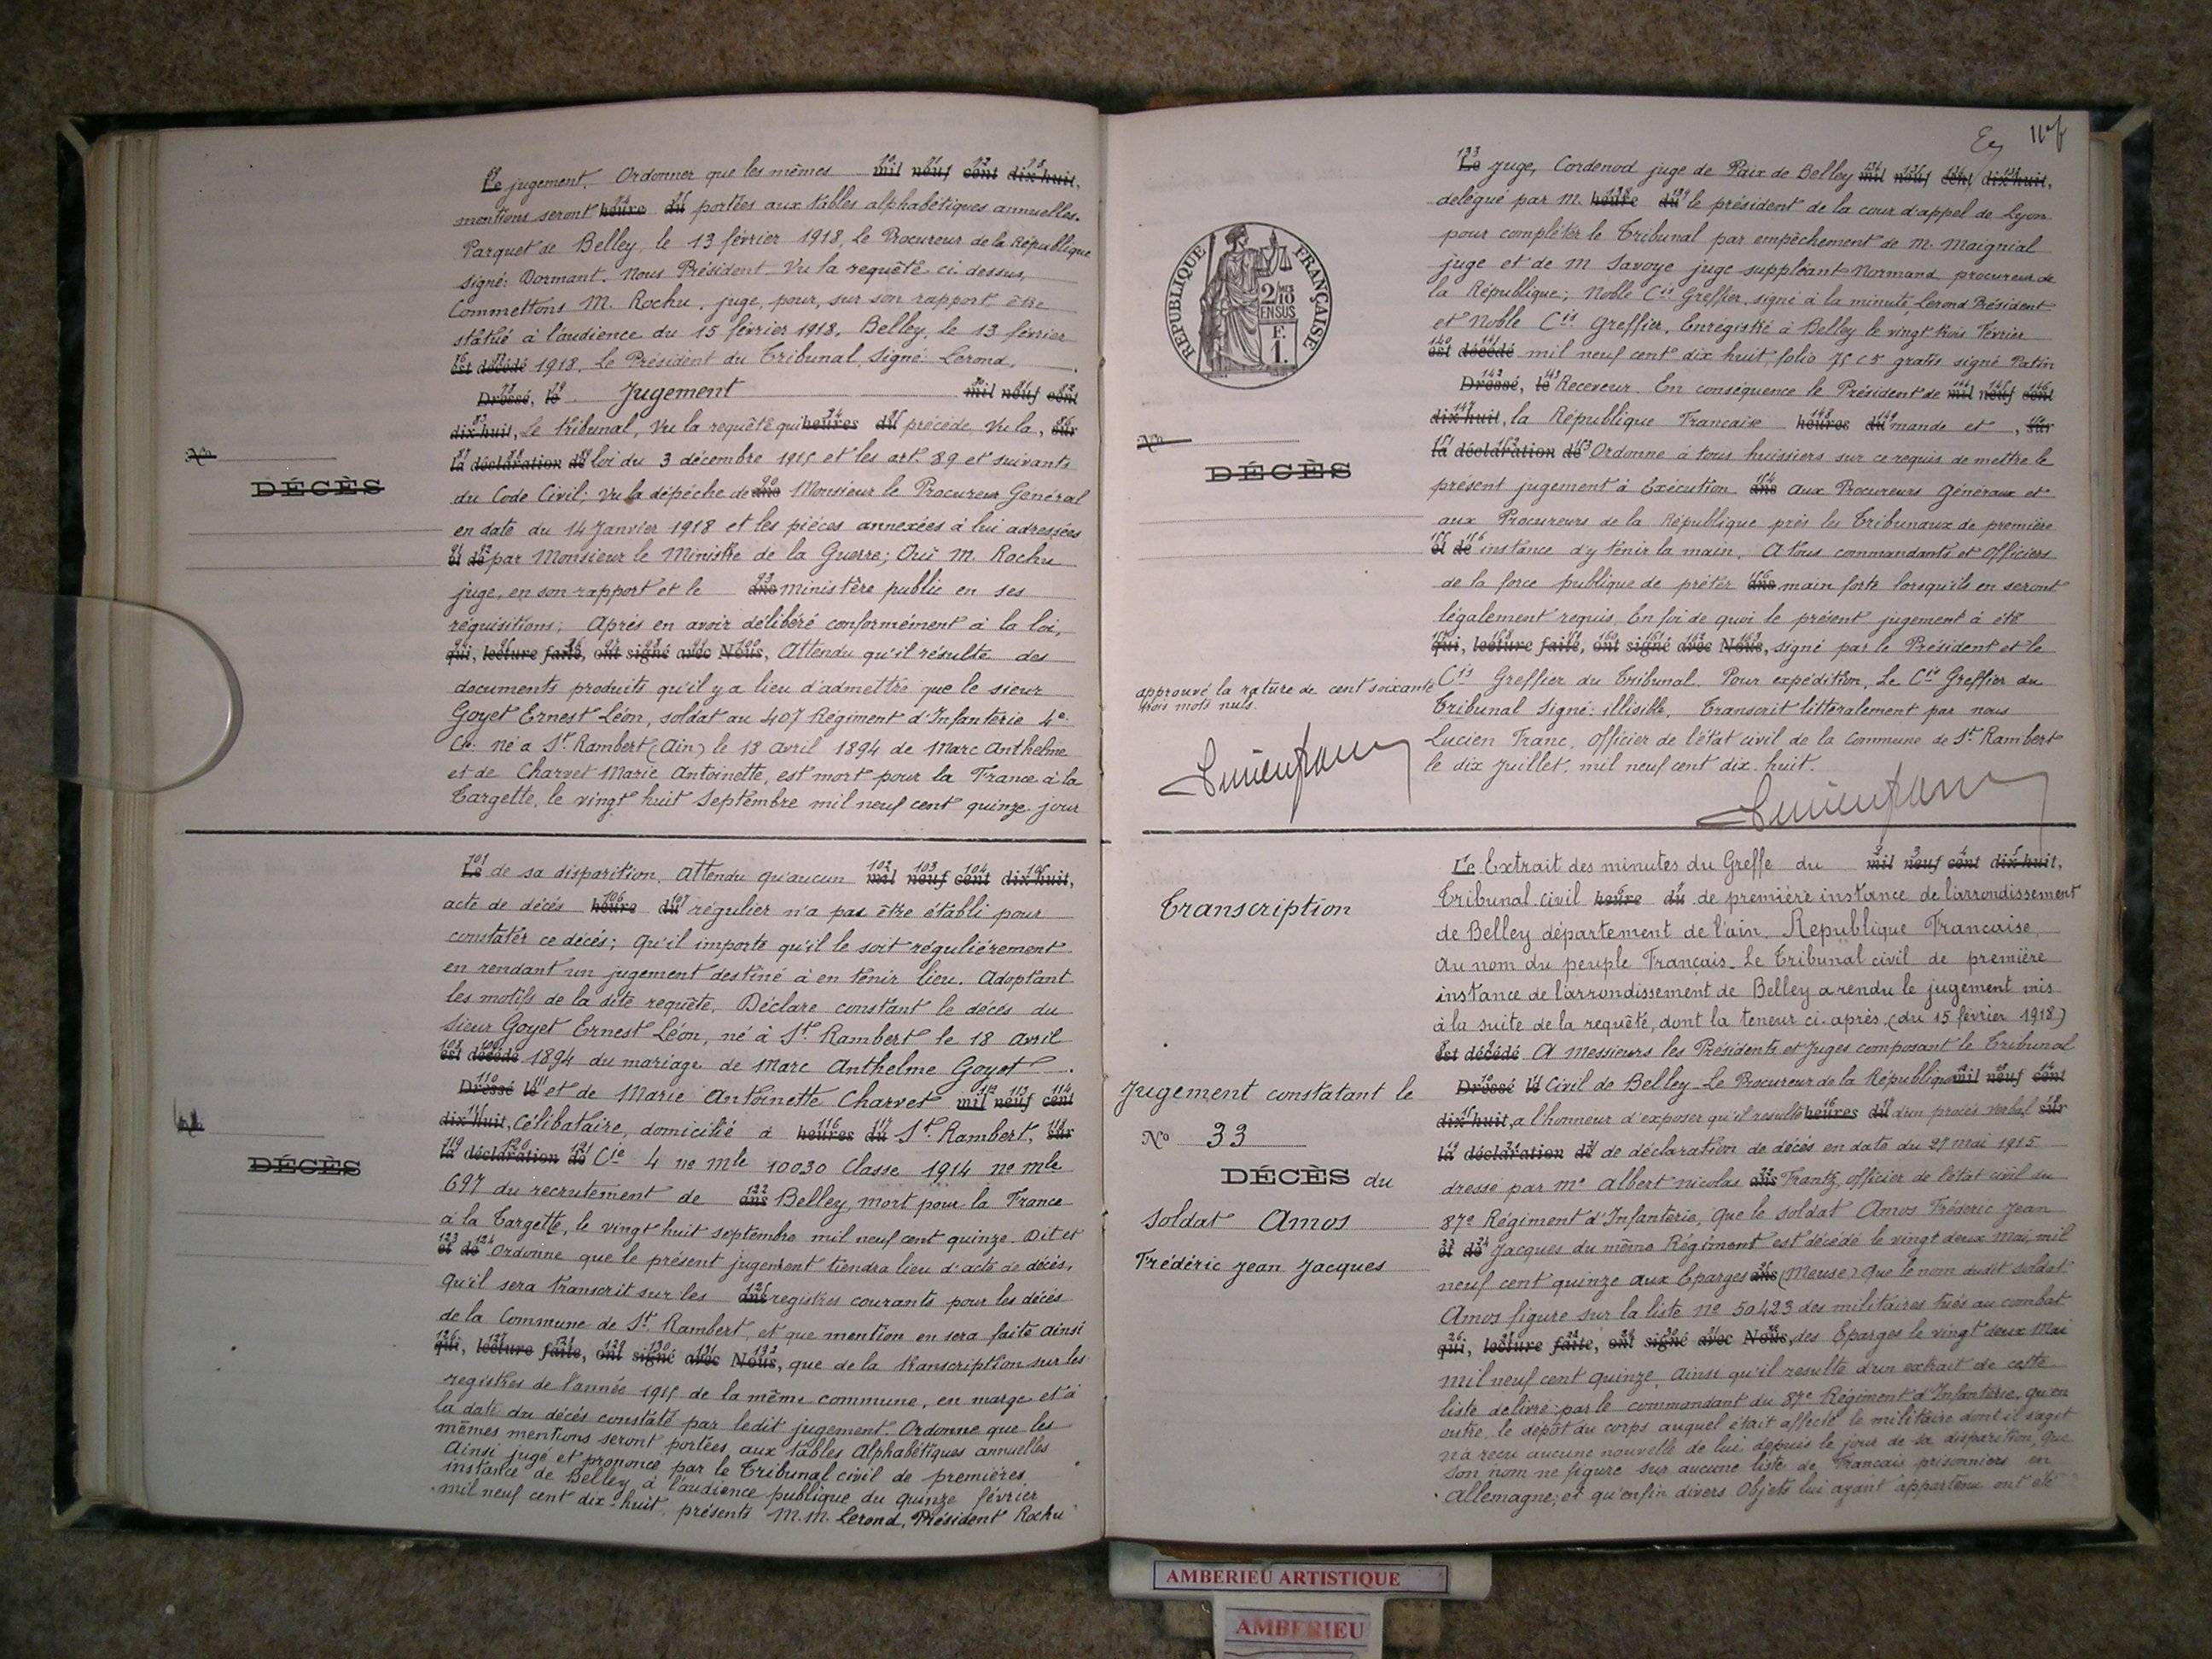 Le jugement. Ordonner que les mêmes mil neuf cent dix huit,
mentions seront heure du portées aux tables alphabétiques annuelles.
Parquet de Belley, le 13 février 1918, Le Procureur de la République
signé: Dormant. Nous Président. Vu la requête ci dessus,
Commettons M. Rochu, juge, pour, sur son rapport être
statué à l'audience du 15 février 1918. Belley, le 13 février
est décédé 1918, Le Président du Tribunal, Signé: Lerond.
Dressé, le Jugement mil neuf cent
dix huit, Le tribunal, Vu la requête qui heures du précède, Vu la, sur
la déclaration de loi du 3 décembre 1915 et les art. 89 et suivants
No
DÉCÈS
du Code Civil; Vu la dépêche de ans Monsieur le Procureur Général
en date du 14 Janvier 1918 et les pièces annexées à lui adressées
et de par Monsieur le Ministre de la Guerre; Ouï M. Rochu
juge, en son rapport et le ans ministère public en ses
réquisitions; Après en avoir délibéré conformément à la loi,
qui, lecture faite, ont signé avec Nous, Attendu qu'il résulte des
documents produits qu'il y a lieu d'admettre que le sieur
Goyet Ernest Léon, soldat au 407 Régiment d'Infanterie 4e
Cie né à St. Rambert (Ain) le 18 avril 1894 de Marc Anthelme
et de Charvet Marie Antoinette, est mort pour la France à la
Targette, le vingt huit Septembre mil neuf cent quinze jour
Le de sa disparition. Attendu qu'aucun mil neuf cent dix huit,
acte de décès heure du régulier n'a pas être établi pour
constater ce décès; Qu'il importe qu'il le soit régulièrement
en rendant un jugement destiné à en tenir lieu. Adoptant
les motifs de la dite requête, Déclare constant le décès du
Sieur Goyet Ernest Léon, né à St. Rambert le 18 avril
est décédé 1894 du mariage de Marc Anthelme Goyet
Dressé le et de Marie Antoinette Charvet mil neuf cent
dix huit, Célibataire, domicilié à heures du St. Rambert, sur
la déclaration de Cie 4 no mle 10030 Classe 1914 no mle
DÉCÈS
697 du recrutement de ans Belley, mort pour la France
à la Targette, le vingt huit septembre mil neuf cent quinze. Dit et
et de Ordonne que le présent jugement tiendra lieu d'acte de décès,
Qu'il sera transcrit sur les ans registres courants pour les décès
de la Commune de St. Rambert, et que mention en sera faite ainsi
qui, lecture faite, ont signé avec Nous, que de la transcription sur les
registres de l'année 1915 de la même commune, en marge et à
la date du décès constaté par ledit jugement. Ordonne que les
mêmes mentions seront portées aux tables Alphabétiques annuelles
Ainsi jugé et prononcé par le Tribunal civil de premières
instance de Belley à l'audience publique du quinze février
mil neuf cent dix-huit. présents M.M. Lerond, Président Rochu
Le juge, Cordenod juge de Paix de Belley mil neuf cent dix huit,
délégué par M. heure du le président de la cour d'appel de Lyon
pour compléter le Tribunal par empêchement de M. Maignial
juge et de M Savoye juge suppléant Normand procureur de
la République; Noble Cis Greffier, signé à la minute, Lerond Président
et Noble Cis Greffier. Enregistré à Belley le vingt trois Février
est décédé mil neuf cent dix huit folio 75 C 5 gratis signé Patin
Dressé, le Receveur. En conséquence le Président de mil neuf cent
dix huit, la République Française heures du mande et, sur
la déclaration de Ordonne à tous huissiers sur ce requis de mettre le
RÉPUBLIQUE FRANÇAISE
2/10 EN SUS
F. 1.
No
DÉCÈS
présent jugement à Exécution ans aux Procureurs Généraux et
aux Procureurs de la République près les Tribunaux de première
et de instance d'y tenir la main. A tous commandants et officiers
de la force publique de prêter ans main forte lorsqu'ils en seront
légalement requis. En foi de quoi le présent jugement à été
qui, lecture faite, ont signé avec Nous, signé par le Président et le
Cis Greffier du Tribunal. Pour expédition, Le Cis Greffier du
approuvé la rature de cent soixante
trois mots nuls.
Tribunal Signé: illisible. Transcrit littéralement par nous
Lucien Franc, Officier de l'état civil de la Commune de St. Rambert
le dix juillet, mil neuf cent dix-huit.
Lucien Franc
Lucien Franc
Transcription
Jugement constatant le
No 33
DÉCÈS du
Soldat Amos
Frédéric Jean Jacques
Le Extrait des minutes du Greffe du mil neuf cent dix huit,
Tribunal civil heure du de première instance de l'arrondissement
de Belley département de l'ain. Republique Francaise.
Au nom du peuple Français. Le Tribunal civil de première
instance de l'arrondissement de Belley a rendu le jugement mis
à la suite de la requête, dont la teneur ci-après (du 15 février 1918)
est décédé A Messieurs les Présidents et Juges composant le Tribunal
Dressé le Civil de Belley - Le Procureur de la République mil neuf cent
dix huit, a l'honneur d'exposer qu'il resulte heures du d'un procès verbal sur
la déclaration de de déclaration de décès en date du 27 mai 1915
dressé par Mr Albert Nicolas ans Frantz, officier de l'état civil du
87e Régiment d'Infanterie, Que le soldat Amos Fréderic Jean
et de Jacques du même Régiment est décédé le vingt deux Mai, mil
neuf cent quinze aux Eparges ans (Meuse) Que le nom dudit soldat
Amos figure sur la liste No 50423 des militaires tués au combat
qui, lecture faite, ont signé avec Nous, des Eparges le vingt deux Mai
mil neuf cent quinze, Ainsi qu'il resulte d'un extrait de cette
liste delivré par le commandant du 87e Régiment d'Infanterie, qu'en
outre, le dépôt du corps auquel était affecté le militaire dont il s'agit
n'a reçu aucune nouvelle de lui depuis le jour de sa disparition, Que
son nom ne figure sur aucune liste de Francais prisonniers en
Allemagne; et qu'enfin divers Objets lui ayant appartenu ont été
AMBERIEU ARTISTIQUE
AMBERIEU